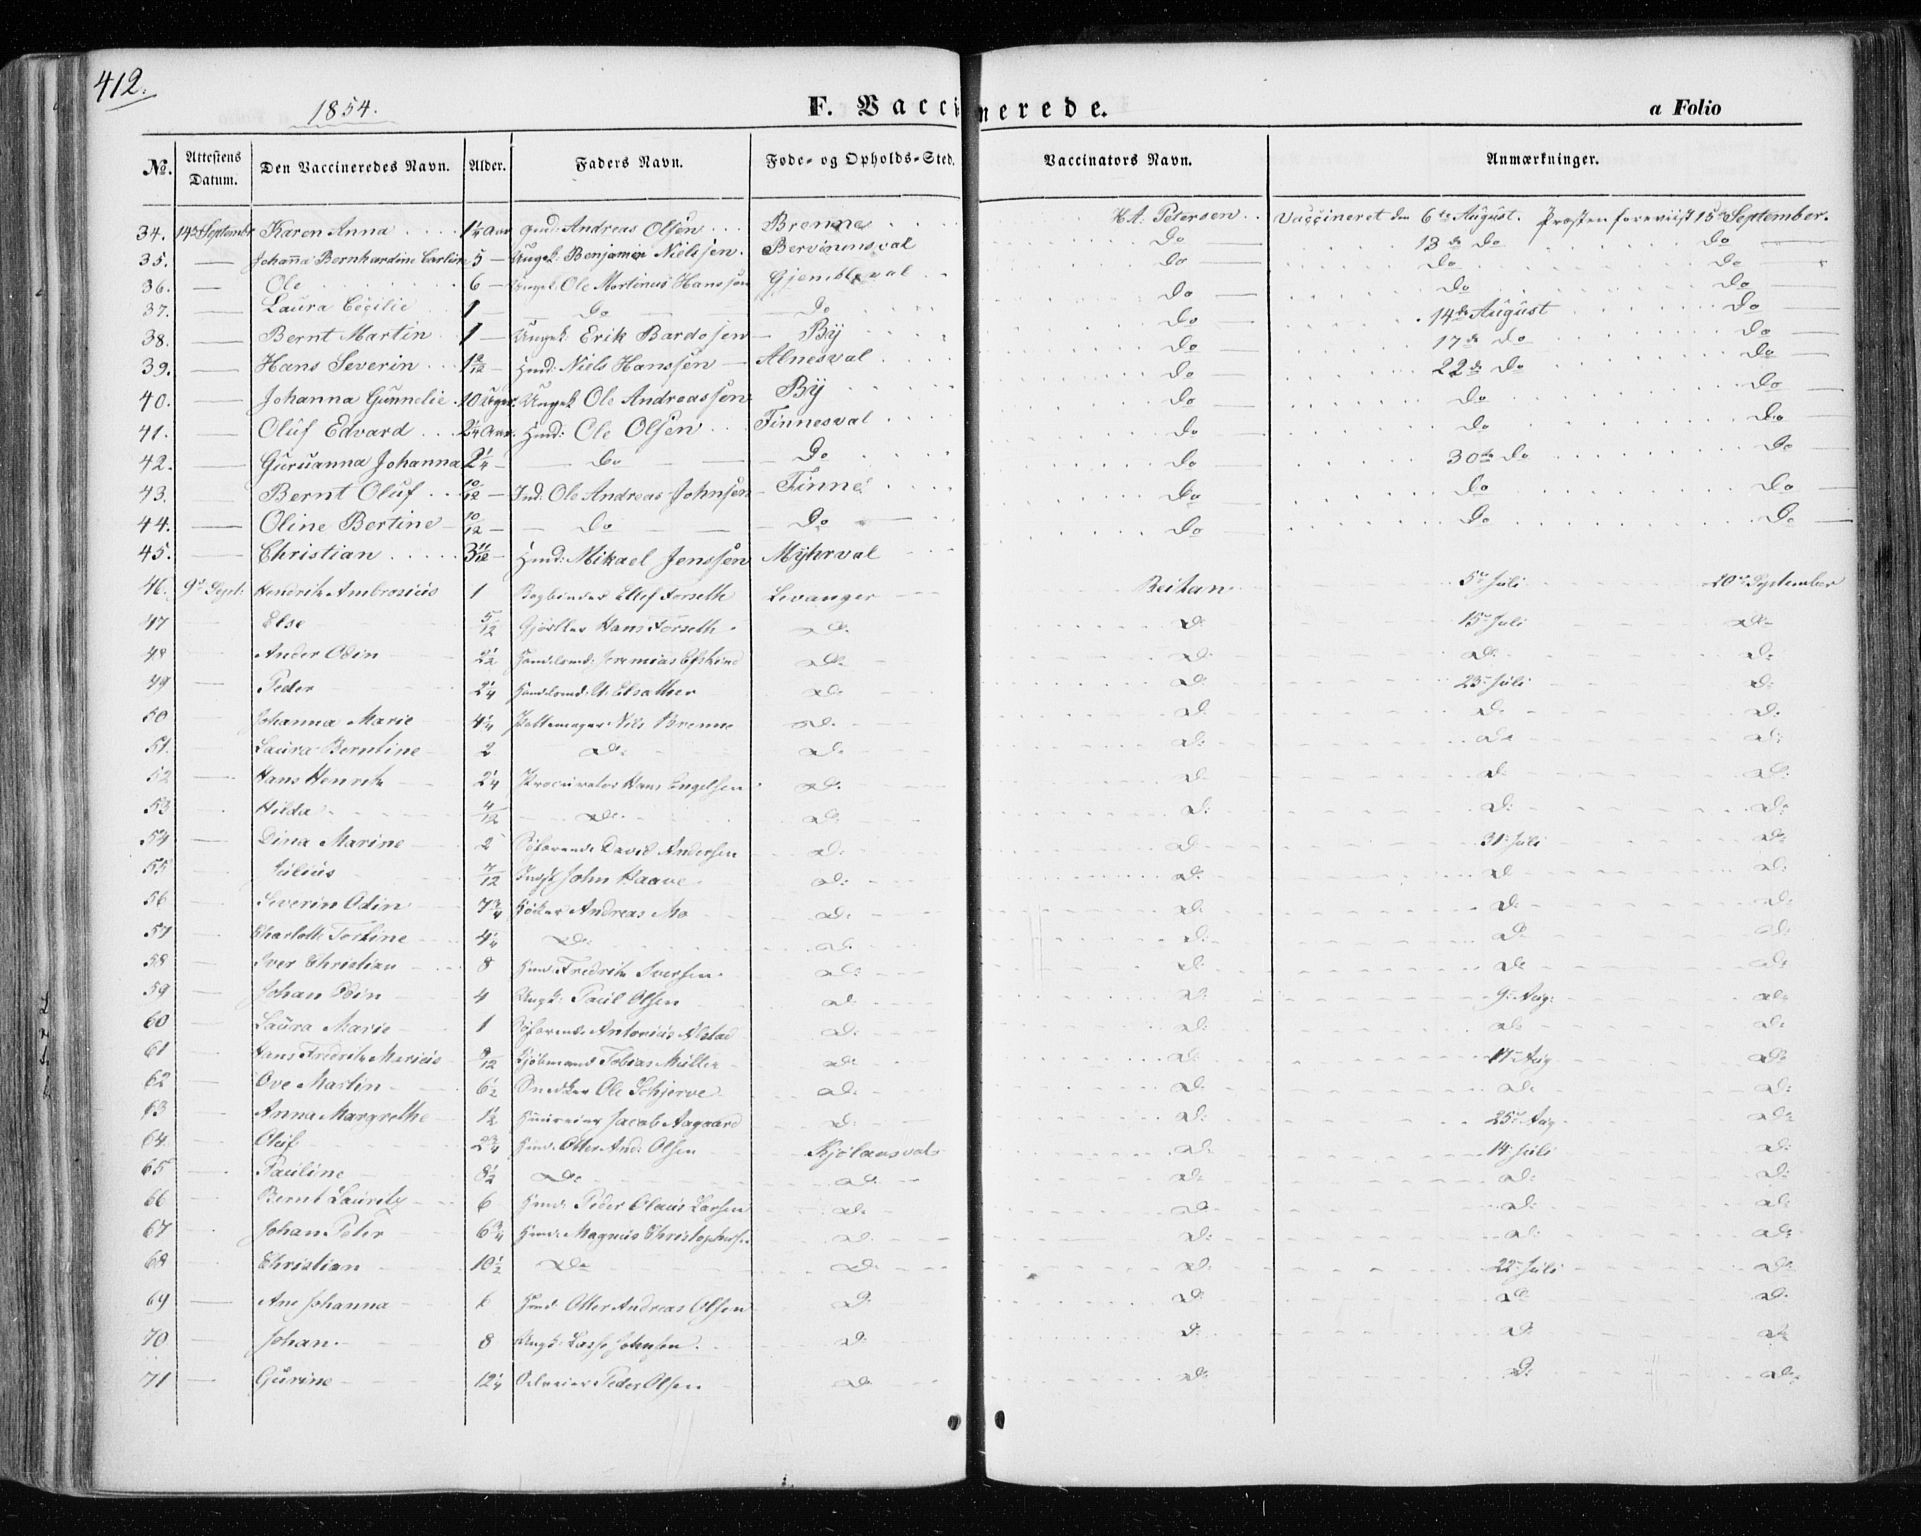 412.
1854.
F. Vaccinerede.
a Folio
No. Attestens Datum. Den Vaccineredes Navn. Alder. Faders Navn. Føde- og Opholds-Sted. Vaccinators Navn. Anmærkninger.
34. 14de September Karen Anna 1¼ Aar Andreas Olsen Brenne H.A. Petersen Vaccineret den 6te August. Præsten foreviist 15de September.
35. — Johanna Bernhardine 5 — Ungk. Benjamin Nielssen Do 13de Do Do
36. — Ole 6 — Ungk. Ole Martinus Hanssøn Gjembleval Do Do Do
37. — Laura Cecilie 1 — Do Do Do Do Do
38. — Bernt Martin 1 — Ungk. Erik Bardosen By Do 14de August Do
39. — Hans Severin Hmd: Niels Hanssøn Alnesval Do 17de Do Do
40. — Johanna Gunnelie 10 Uger. Ungk. Ole Andreassøn By Do 22de Do Do
41. — Oluf Edvard 2¼ Aar. Hmd: Ole Olsen Finnesval Do Do Do
42. — Guruanna Johanna 2¼ — Do Do Do Do Do
43. — Bernt Oluf 10/12 — Ind. Ole Andreas Johnsøn Finne Do 30de Do Do
44. — Oline Bertine 10/12 — Do Do Do Do Do
45. — Christian Hmd: Mikael Jenssøn Myhrval Do Do Do
46. 9de Sept: Hendrik Ambrosius 1 Bogbinder Ellef Forseth Levanger Beitan 5te Juli 20de September
47 — Else 5/12 Gjørtler Hans Forseth Do. D: 15de Juli Do
48 — Ander Odin 2½ Handlsmd: Jeremias Do. D: D: D:
49 — Peder 2¼ Handlsmd: Do. D: 23de Juli D:
50 — Johanna Marie 4¼ Pottemager Nils Brenne Do. D: D: D.
51. — Laura Berntine 2 Do. Do. D: Do D:
52 — Hans Henrik 2¼ Procurator Hans Engelsen Do. D: D: D:
53 — Hilda Do. Do. D: D: D:
54 — Dina Marine 2 Søfarende David Andersen D. D: 31te Juli D:
55 — Julius John Haave D: D: D D:
56 — Severin Odin 7¾ Høker Andreas Mo D: D: D: D:
57 — Charlotte Torline 4¼ Do: D. D: D. D:
58 — Iver Christian 8 Hmd: Fredrik Iversen D: D: D: D:
59 — Johan Odin 4 Ungk: Paul Olsen D. D: 9de Aug: D:
60 — Laura Marie 1 Søfarende Antonius Alstad D: D: D: D.
61 — Hans Fredrik Marius 9/12 Kjøbmand Tobias Müller Do: D: 17de Aug D:
62 — Ove Martin 6½ Snedker Ole Schjerve D: D: D: D:
63 — Anna Margrethe 1½ Jacob Aagaard D: D: 25de Aug D:
64. — Oluf 2¾ Hmd: Otter And: Olsen D: 14 Juli D:
65 — Pauline 8½ Do D: D: D: D:
66 — Bernt Lauritz 6 Hmd: Peder Olaus Larsen D: D: D: D:
67 — Johan Peter 6¾ Hmd: Magnus Christophersen D. D: D: D:
68 — Christian 10½ Do D: D: 22de Juli D:
69 — Ane Johanna 6 Hmd. Otter Andreas Olsen D. D: D: D.
70 — Johan 8 Ungk: Lasse Johnsen D: D: D: D:
71 — Gurine 12¼ Peder Olsen D: D: D: D: